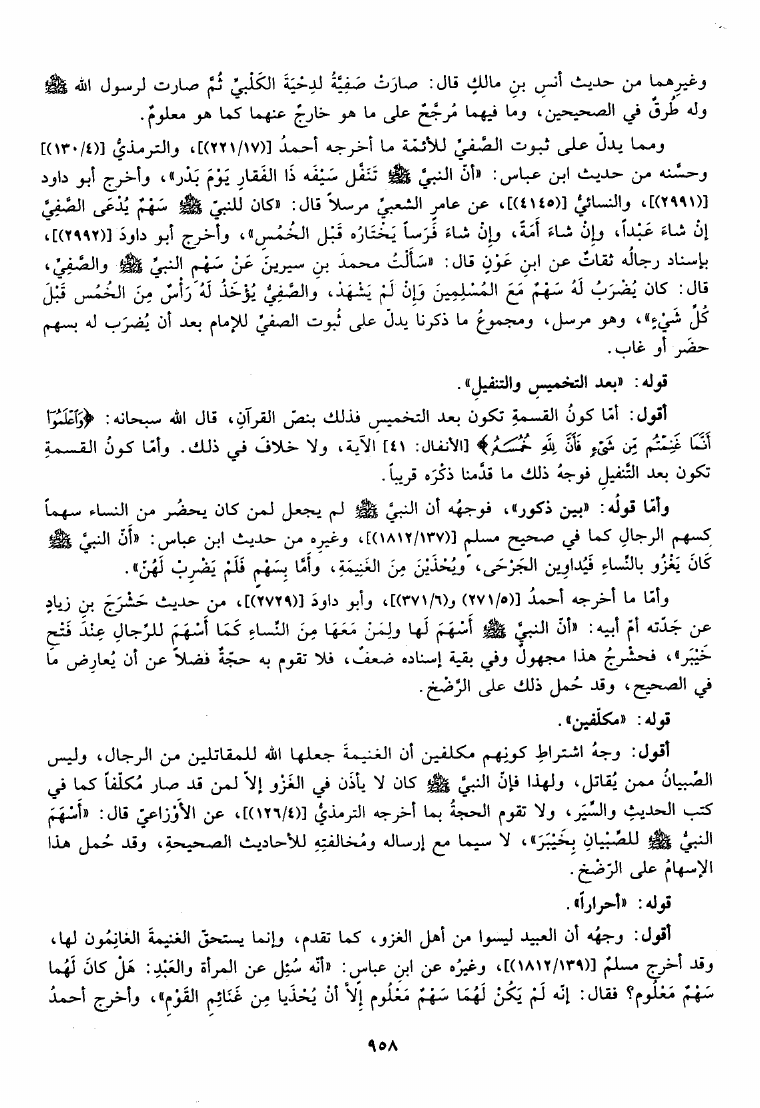 وغيرهما من حديث أنسِ بنِ مالكٍ قال: صارَتْ صَفِيَّةُ لدِحْيَةَ الكَلْبيِّ ثُمَّ صارت لرسول الله ﷺ
وله طُرقٌ في الصحيحين، وما فيهما مُرجَّحٌ على ما هو خارجٌ عنهما كما هو معلومٌ.
ومما يدلّ على ثبوت الصَّفيِّ للأئمّة ما أخرجه أحمدُ [(٢٢١/١٧)]، والترمذيُّ [(١٣٠/٤)]
وحسَّنه من حديث ابن عباس: «أنّ النبيَّ ﷺ تَنَفَّل سَيْفَه ذَا الفَقارِ يَوْمَ بَدْر»، وأخرج أبو داود
[(٢٩٩١)]، والنسائيُّ [(٤١٤٥)]، عن عامرٍ الشعبيِّ مرسلاً قال: «كان للنبيّ ﷺ سَهْمٌ يُدْعَى الصَّفِيَّ
إنْ شاءَ عَبْداً، وإنْ شاءَ أَمَةً، وإنْ شاءَ فَرَساً يَخْتَارُه قَبْل الخُمُس»، وأخرج أبو داودَ [(٢٩٩٢)]،
بإسناد رجالُه ثقاتٌ عن ابنِ عَوْنٍ قال: «سَأَلْتُ محمدَ بنِ سيرينَ عَنْ سَهْمِ النبيِّ ﷺ والصَّفِيّ،
قال: كان يُضْرَبُ لَهُ سَهْمٌ مَعَ المُسْلِمِينَ وَإنْ لَمْ يَشْهَدْ، والصَّفِيُّ يُؤْخَذُ لَهُ رَأْسٌ مِنَ الخُمُس قَبْلَ
كُلِّ شَيْءٍ»، وهو مرسل، ومجموعُ ما ذكرنا يدلّ على ثُبوت الصفيِّ للإمام بعد أن يُضرَب له بسهم
حضَر أو غاب.
قوله: «بعد التخميسِ والتنفيلِ».
أقول: أمّا كونُ القسمةِ تكون بعد التخميسِ فذلك بنصّ القرآنِ، قال الله سبحانه: ﴿وَٱعْلَمُوٓا۟
أَنَّمَا غَنِمْتُم مِّن شَىْءٍ فَأَنَّ لِلَّهِ خُمُسَهُۥ﴾ [الأنفال: ٤١] الآيةَ، ولا خلافَ في ذلك. وأمّا كونُ القسمةِ
تكون بعد التَّنفيلِ فوجهُ ذلك ما قدَّمنا ذكْرَه قريباً.
وأمّا قولُه: «بين ذكورٍ»، فوجهُه أن النبيَّ ﷺ لم يجعل لمن كان يحضُر من النساء سهماً
كسهم الرجالِ كما في صحيح مسلم [(١٨١٢/١٣٧)]، وغيرِه من حديث ابن عباس: «أنّ النبيَّ ﷺ
كَانَ يَغْزُو بالنِّساءِ فَيُداوِين الجَرْحَى، ويُحْذَيْنَ مِنَ الغَنِيمَةِ، وأمَّا بِسَهْمٍ فَلَمْ يَضْرِبْ لَهُنّ».
وأمّا ما أخرجه أحمدُ [(٢٧١/٥) و(٣٧١/٦)]، وأبو داودَ [(٢٧٢٩)]، من حديث حَشْرَجَ بنِ زيادٍ
عن جَدّته أمّ أبيه: «أنّ النبيَّ ﷺ أَسْهَمَ لَها ولِمَنْ مَعَهَا مِنَ النِّساءِ كَمَا أَسْهَمَ للرِّجالِ عِنْدَ فَتْحِ
خَيْبَر»، فحشرجُ هذا مجهولٌ وفي بقية إسناده ضعفٌ، فلا تقوم به حجّةٌ فضلاً عن أن يُعارِض ما
في الصحيح، وقد حُمل ذلك على الرَّضْخ.
قوله: «مكلّفين».
أقول: وجهُ اشتراطِ كونِهم مكلفين أن الغنيمةَ جعلها الله للمقاتلين من الرجال، وليس
الصِّبيانُ ممن يُقاتل، ولهذا فإنّ النبيَّ ﷺ كان لا يأذَن في الغَزْو إلاّ لمن قد صار مُكلّفاً كما في
كتب الحديثِ والسِّيَر، ولا تقوم الحجةُ بما أخرجه الترمذيُّ [(١٢٦/٤)]، عن الأوْزاعيّ قال: «أَسْهَمَ
النبيُّ ﷺ للصِّبْيانِ بِخَيْبَرَ»، لا سيما مع إرساله ومُخالفتِهِ للأحاديث الصحيحةِ، وقد حُمل هذا
الإسهامُ على الرّضْخ.
قوله: «أحراراً».
أقول: وجهُه أن العبيد ليسوا من أهل الغزو، كما تقدم، وإنما يستحقّ الغنيمةَ الغانِمُون لها،
وقد أخرج مسلمٌ [(١٨١٢/١٣٩)]، وغيرُه عن ابن عباس: «أنّه سُئِل عن المرأةِ والعَبْدِ: هَلْ كانَ لَهُما
سَهْمٌ مَعْلُوم؟ فقال: إنّه لَمْ يَكُنْ لَهُمَا سَهْمٌ مَعْلُوم إلاّ أنْ يُحْذَيا مِن غَنَائِم القَوْمِ»، وأخرج أحمدُ
٩٥٨